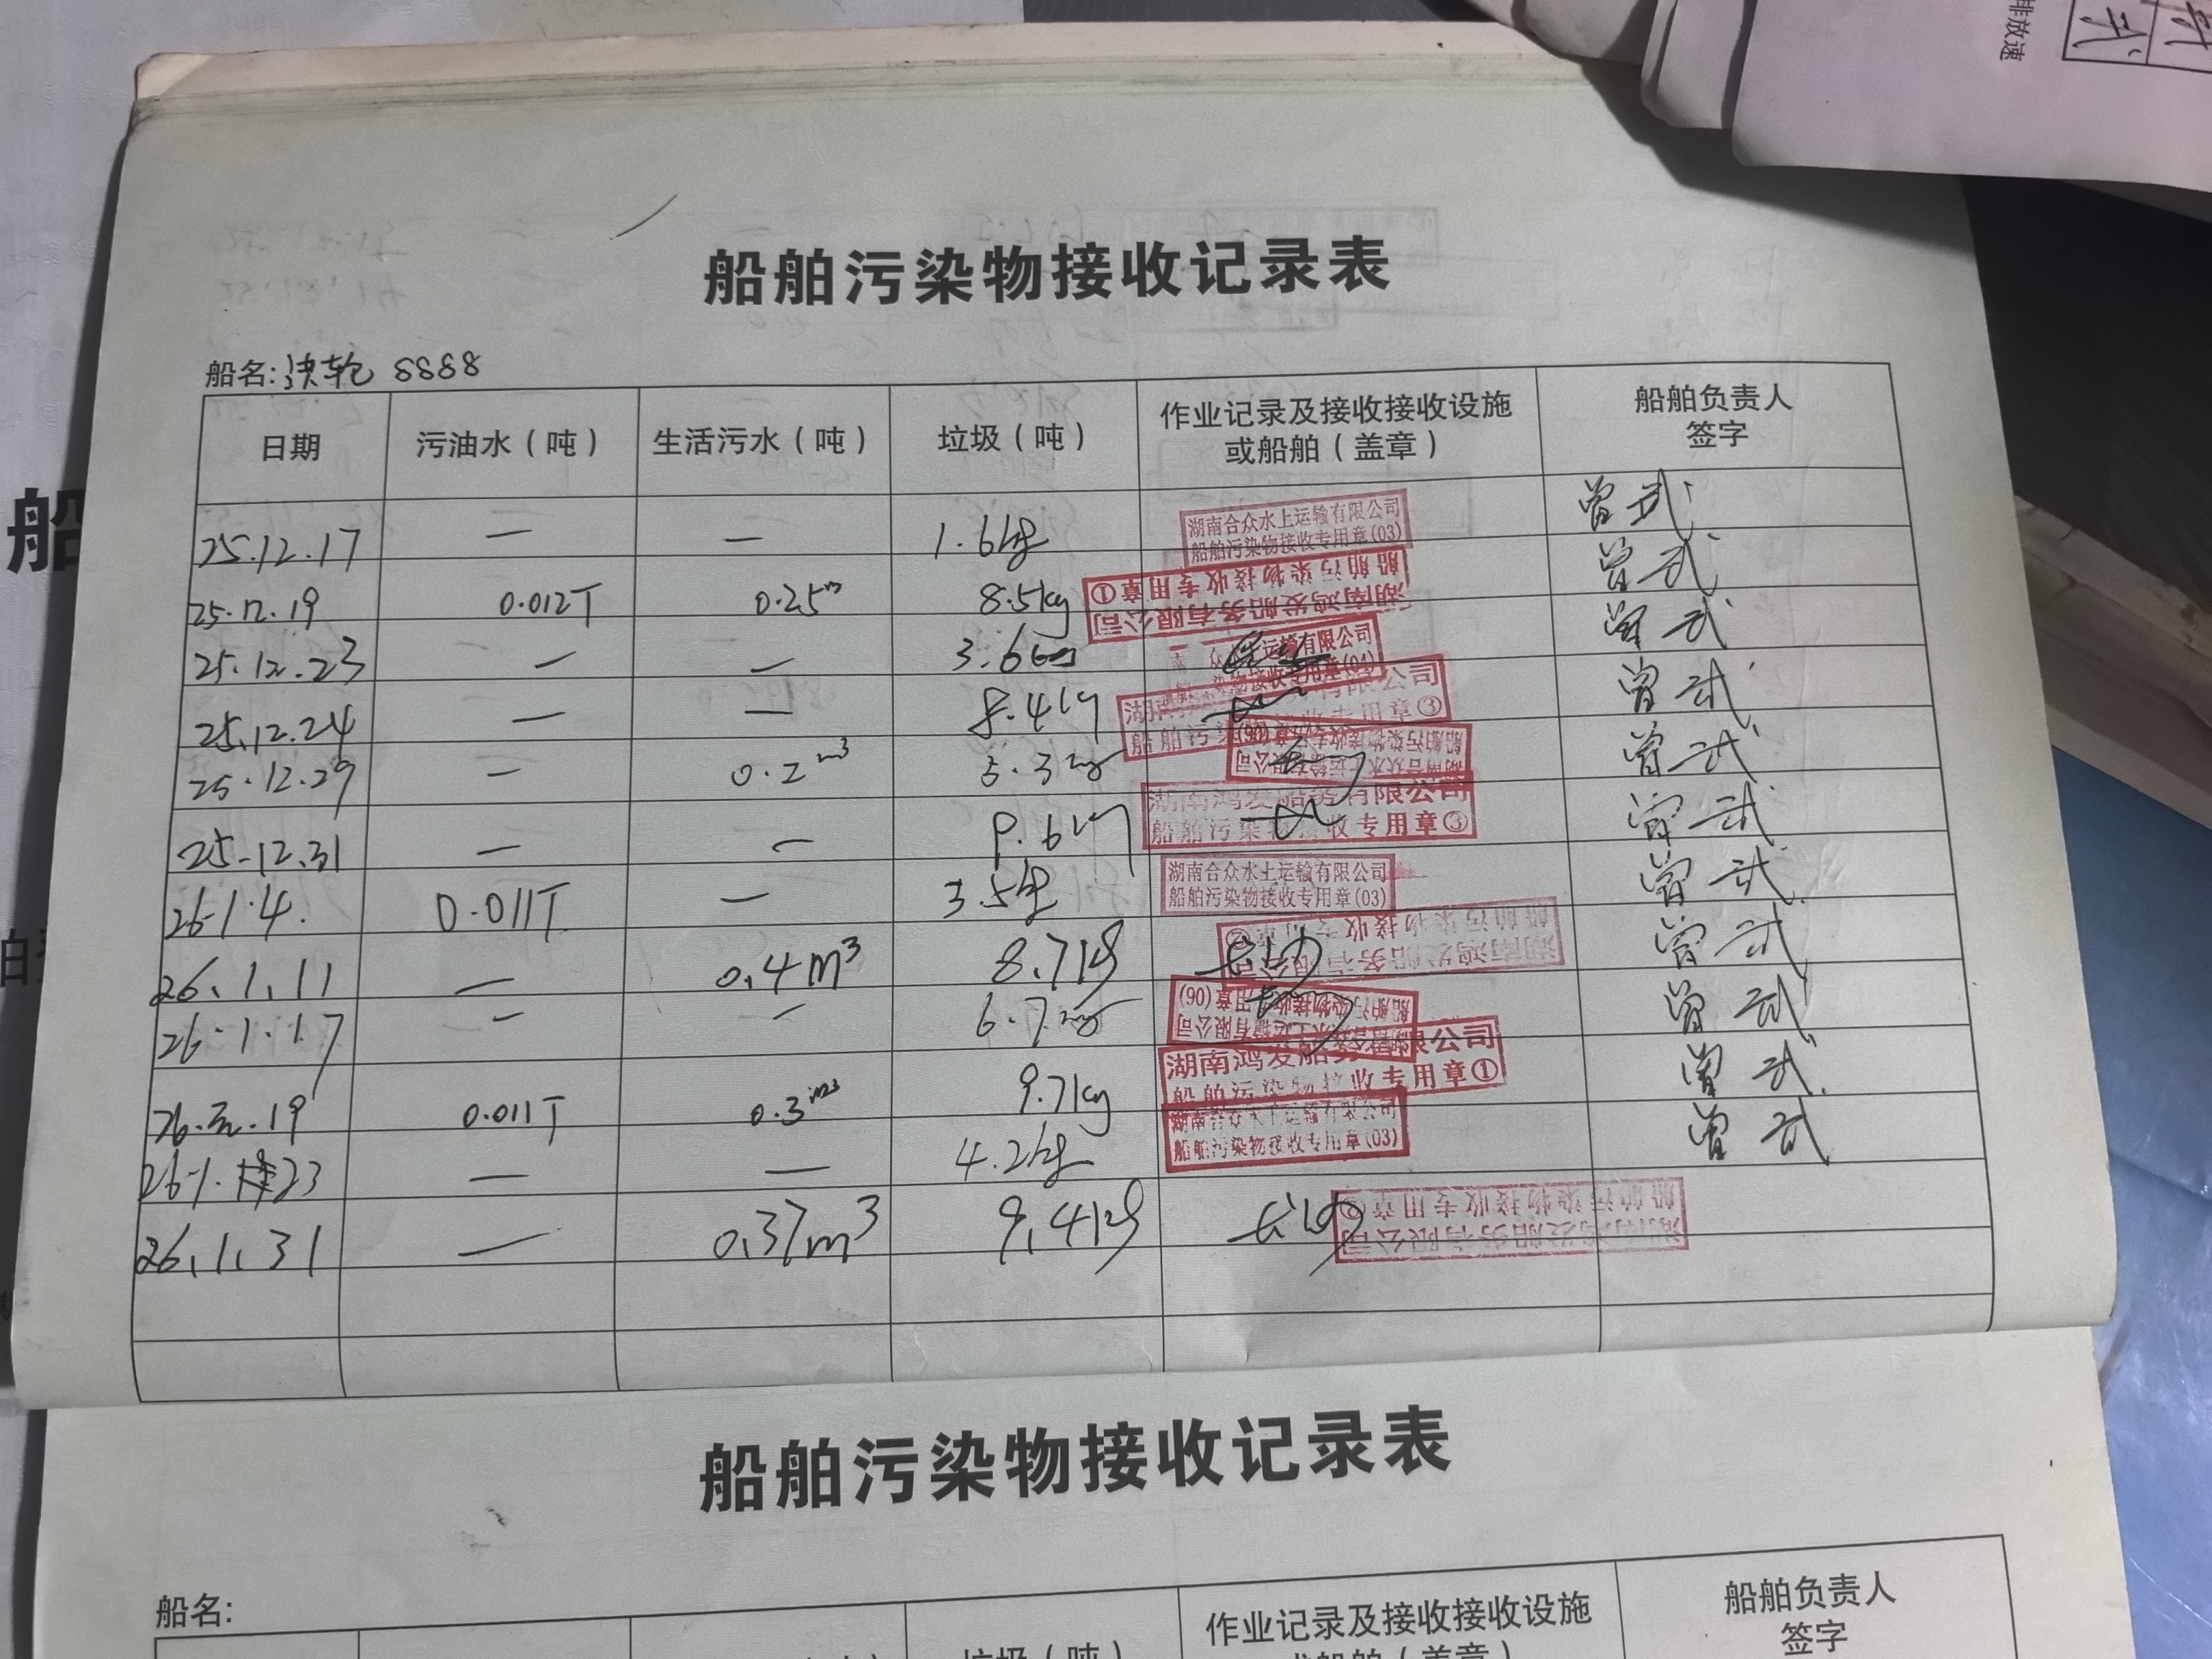 排放速
船舶污染物接收记录表
船名: 洪轮 8888
日期 污油水（吨） 生活污水（吨） 垃圾（吨） 作业记录及接收接收设施或船舶（盖章） 船舶负责人签字
25.12.17 — — 1.6kg 湖南合众水上运输有限公司 船舶污染物接收专用章(03) 曾武
25.12.19 0.012T 0.25m 8.5kg 湖南鸿发船务有限公司 船舶污染物接收专用章① 曾武
25.12.23 — — 3.6kg 众 运输有限公司 染物接收专用章(04) 曾武
25.12.24 — — 8.4kg 湖南 有限公司 船舶污染 专用章③ 曾武
25.12.29 — 0.2m³ 5.3kg 湖南合众水上运输有限公司 船舶污染物接收专用章(06) 曾武
25.12.31 — — 9.6kg 湖南鸿发船务有限公司 船舶污染物接收专用章③ 曾武
26.1.4. 0.011T — 3.5kg 湖南合众水上运输有限公司 船舶污染物接收专用章(03) 曾武
26.1.11 — 0.4m³ 8.7kg 湖南鸿发船务有限公司 船舶污染物接收专用章② 曾武
26.1.17 — — 6.7kg 湖南合众水上运输有限公司 船舶污染物接收专用章(06) 曾武
26.元.19 0.011T 0.3m3 9.7kg 湖南鸿发船务有限公司 船舶污染物接收专用章① 曾武
26.1.23 — — 4.2kg 湖南合众水上运输有限公司 船舶污染物接收专用章(03) 曾武
26.1.31 — 0.37m³ 9.4kg 湖南鸿发船务有限公司 船舶污染物接收专用章②
船舶污染物接收记录表
船名:
垃圾（吨） 作业记录及接收接收设施或船舶（盖章） 船舶负责人签字